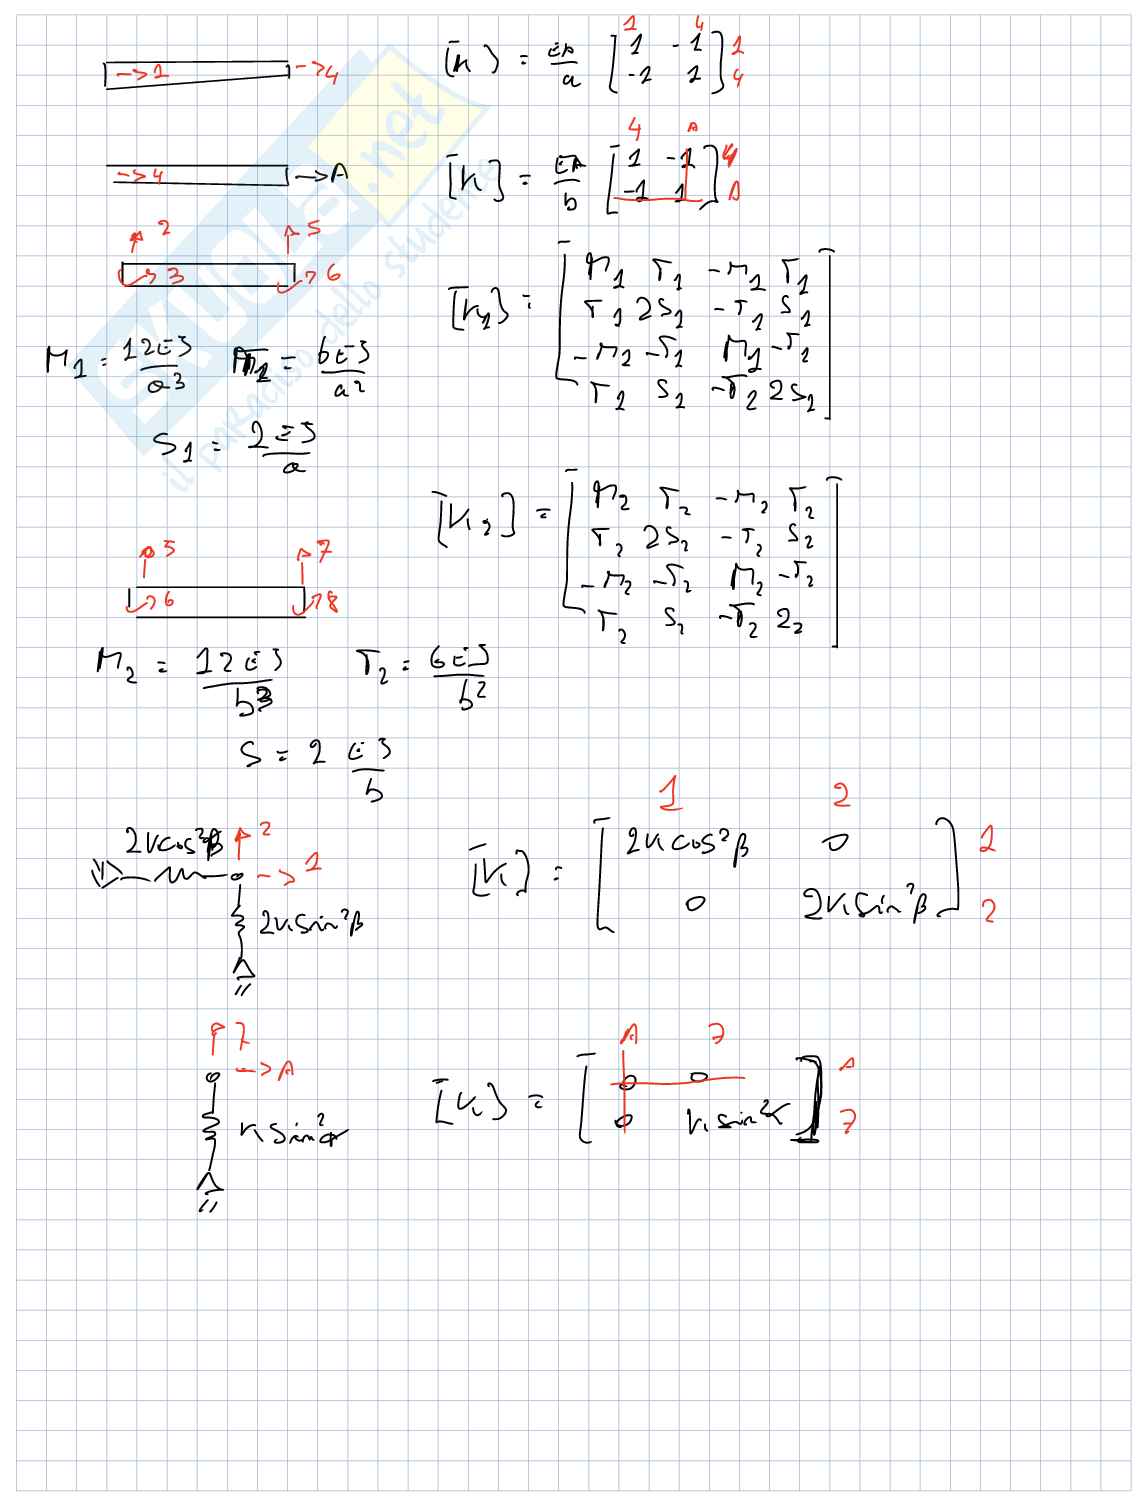 [K] = EA/a [ 1 -1 ; -1 1 ] 1 4 1 4
->1 ->4
[K] = EA/b [ 1 -1 ; -1 1 ] 4 A 4 A
->4 ->A
2 5
3 6
[K1] = [ M1 T1 -M1 T1
T1 2S1 -T1 S1
-M1 -T1 M1 -T1
T1 S1 -T1 2S1 ]
M1 = 12EJ/a3 T1 = 6EJ/a2
S1 = 2EJ/a
[K2] = [ M2 T2 -M2 T2
T2 2S2 -T2 S2
-M2 -T2 M2 -T2
T2 S2 -T2 22 ]
5 7
6 8
M2 = 12EJ/b3 T2 = 6EJ/b2
S = 2 EJ/b
1 2
2Kcos²β 2
->1
2Ksin²β
[K] = [ 2Kcos²β 0 1
0 2Ksin²β ] 2
7
->A
K sin²α
A 7
[K] = [ 0 0 A
0 Ksin²α ] 7
skuola.net
il paradiso dello studente